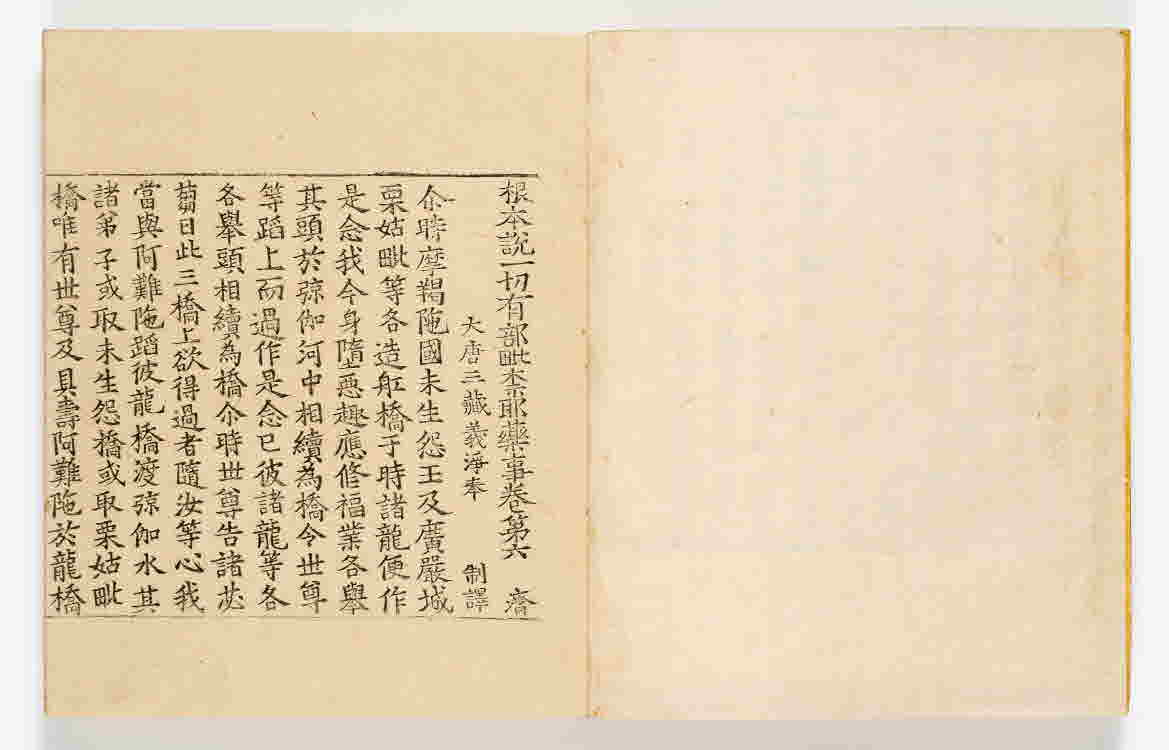 根本説一切有部毗柰耶藥事卷第六 濟
大唐三藏義淨奉 制譯
尒時摩羯陁國未生怨王及廣嚴城
栗姑毗等各造舡橋于時諸龍便作
是念我今身墮惡趣應修福業各舉
其頭於弶伽河中相續為橋令世尊
等蹈上而過作是念已彼諸龍等各
各舉頭相續為橋尒時世尊告諸苾
蒭曰此三橋上欲得過者隨汝等心我
當與阿難陁蹈彼龍橋渡弶伽水其
諸弟子或取未生怨橋或取栗姑毗
橋唯有世尊及具壽阿難陁於龍橋